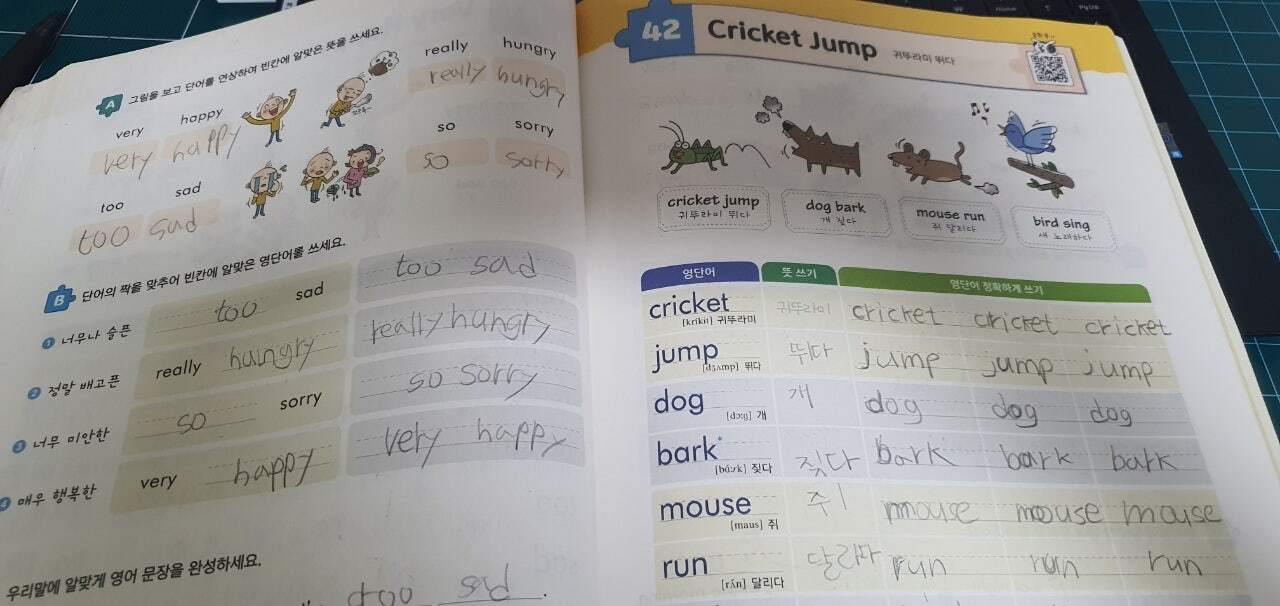 A 그림을 보고 단어를 연상하여 빈칸에 알맞은 뜻을 쓰세요.
very happy
very happy
really hungry
really hungry
too sad
too sad
so sorry
so sorry
B 단어의 짝을 맞추어 빈칸에 알맞은 영단어를 쓰세요.
1 너무나 슬픈 too sad too sad
2 정말 배고픈 really hungry really hungry
3 너무 미안한 so sorry so sorry
4 매우 행복한 very happy very happy
우리말에 알맞게 영어 문장을 완성하세요.
too sad.
42 Cricket Jump 귀뚜라미 뛰다
cricket jump
귀뚜라미 뛰다
dog bark
개 짖다
mouse run
쥐 달리다
bird sing
새 노래하다
영단어 뜻 쓰기 영단어 정확하게 쓰기
cricket 귀뚜라미 cricket cricket cricket
[kríkit] 귀뚜라미
jump 뛰다 jump jump jump
[dʒʌmp] 뛰다
dog 개 dog dog dog
[dɔːg] 개
bark* 짖다 bark bark bark
[bɑːrk] 짖다
mouse 쥐 mouse mouse mouse
[maus] 쥐
run 달리다 run run run
[rʌn] 달리다